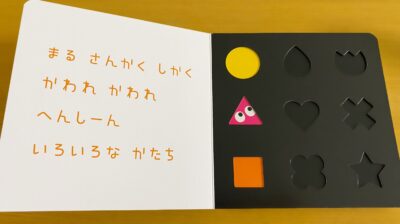 まる さんかく しかく
かわれ かわれ
へんしーん
いろいろな かたち